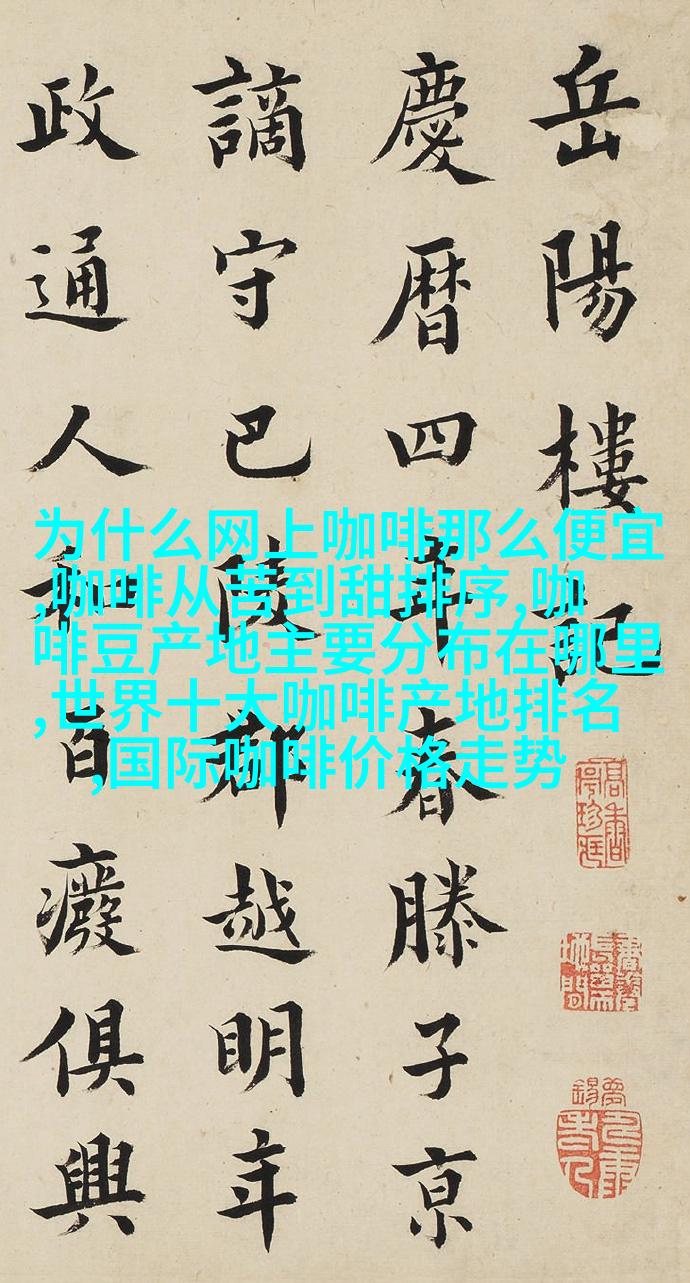 岳陽樓記
慶曆四年春滕子京
謫守巴陵郡越明年
政通人和百廢俱興
为什么网上咖啡那么便宜
,咖啡从苦到甜排序,咖
啡豆产地主要分布在哪里
,世界十大咖啡产地排名
,国际咖啡价格走势